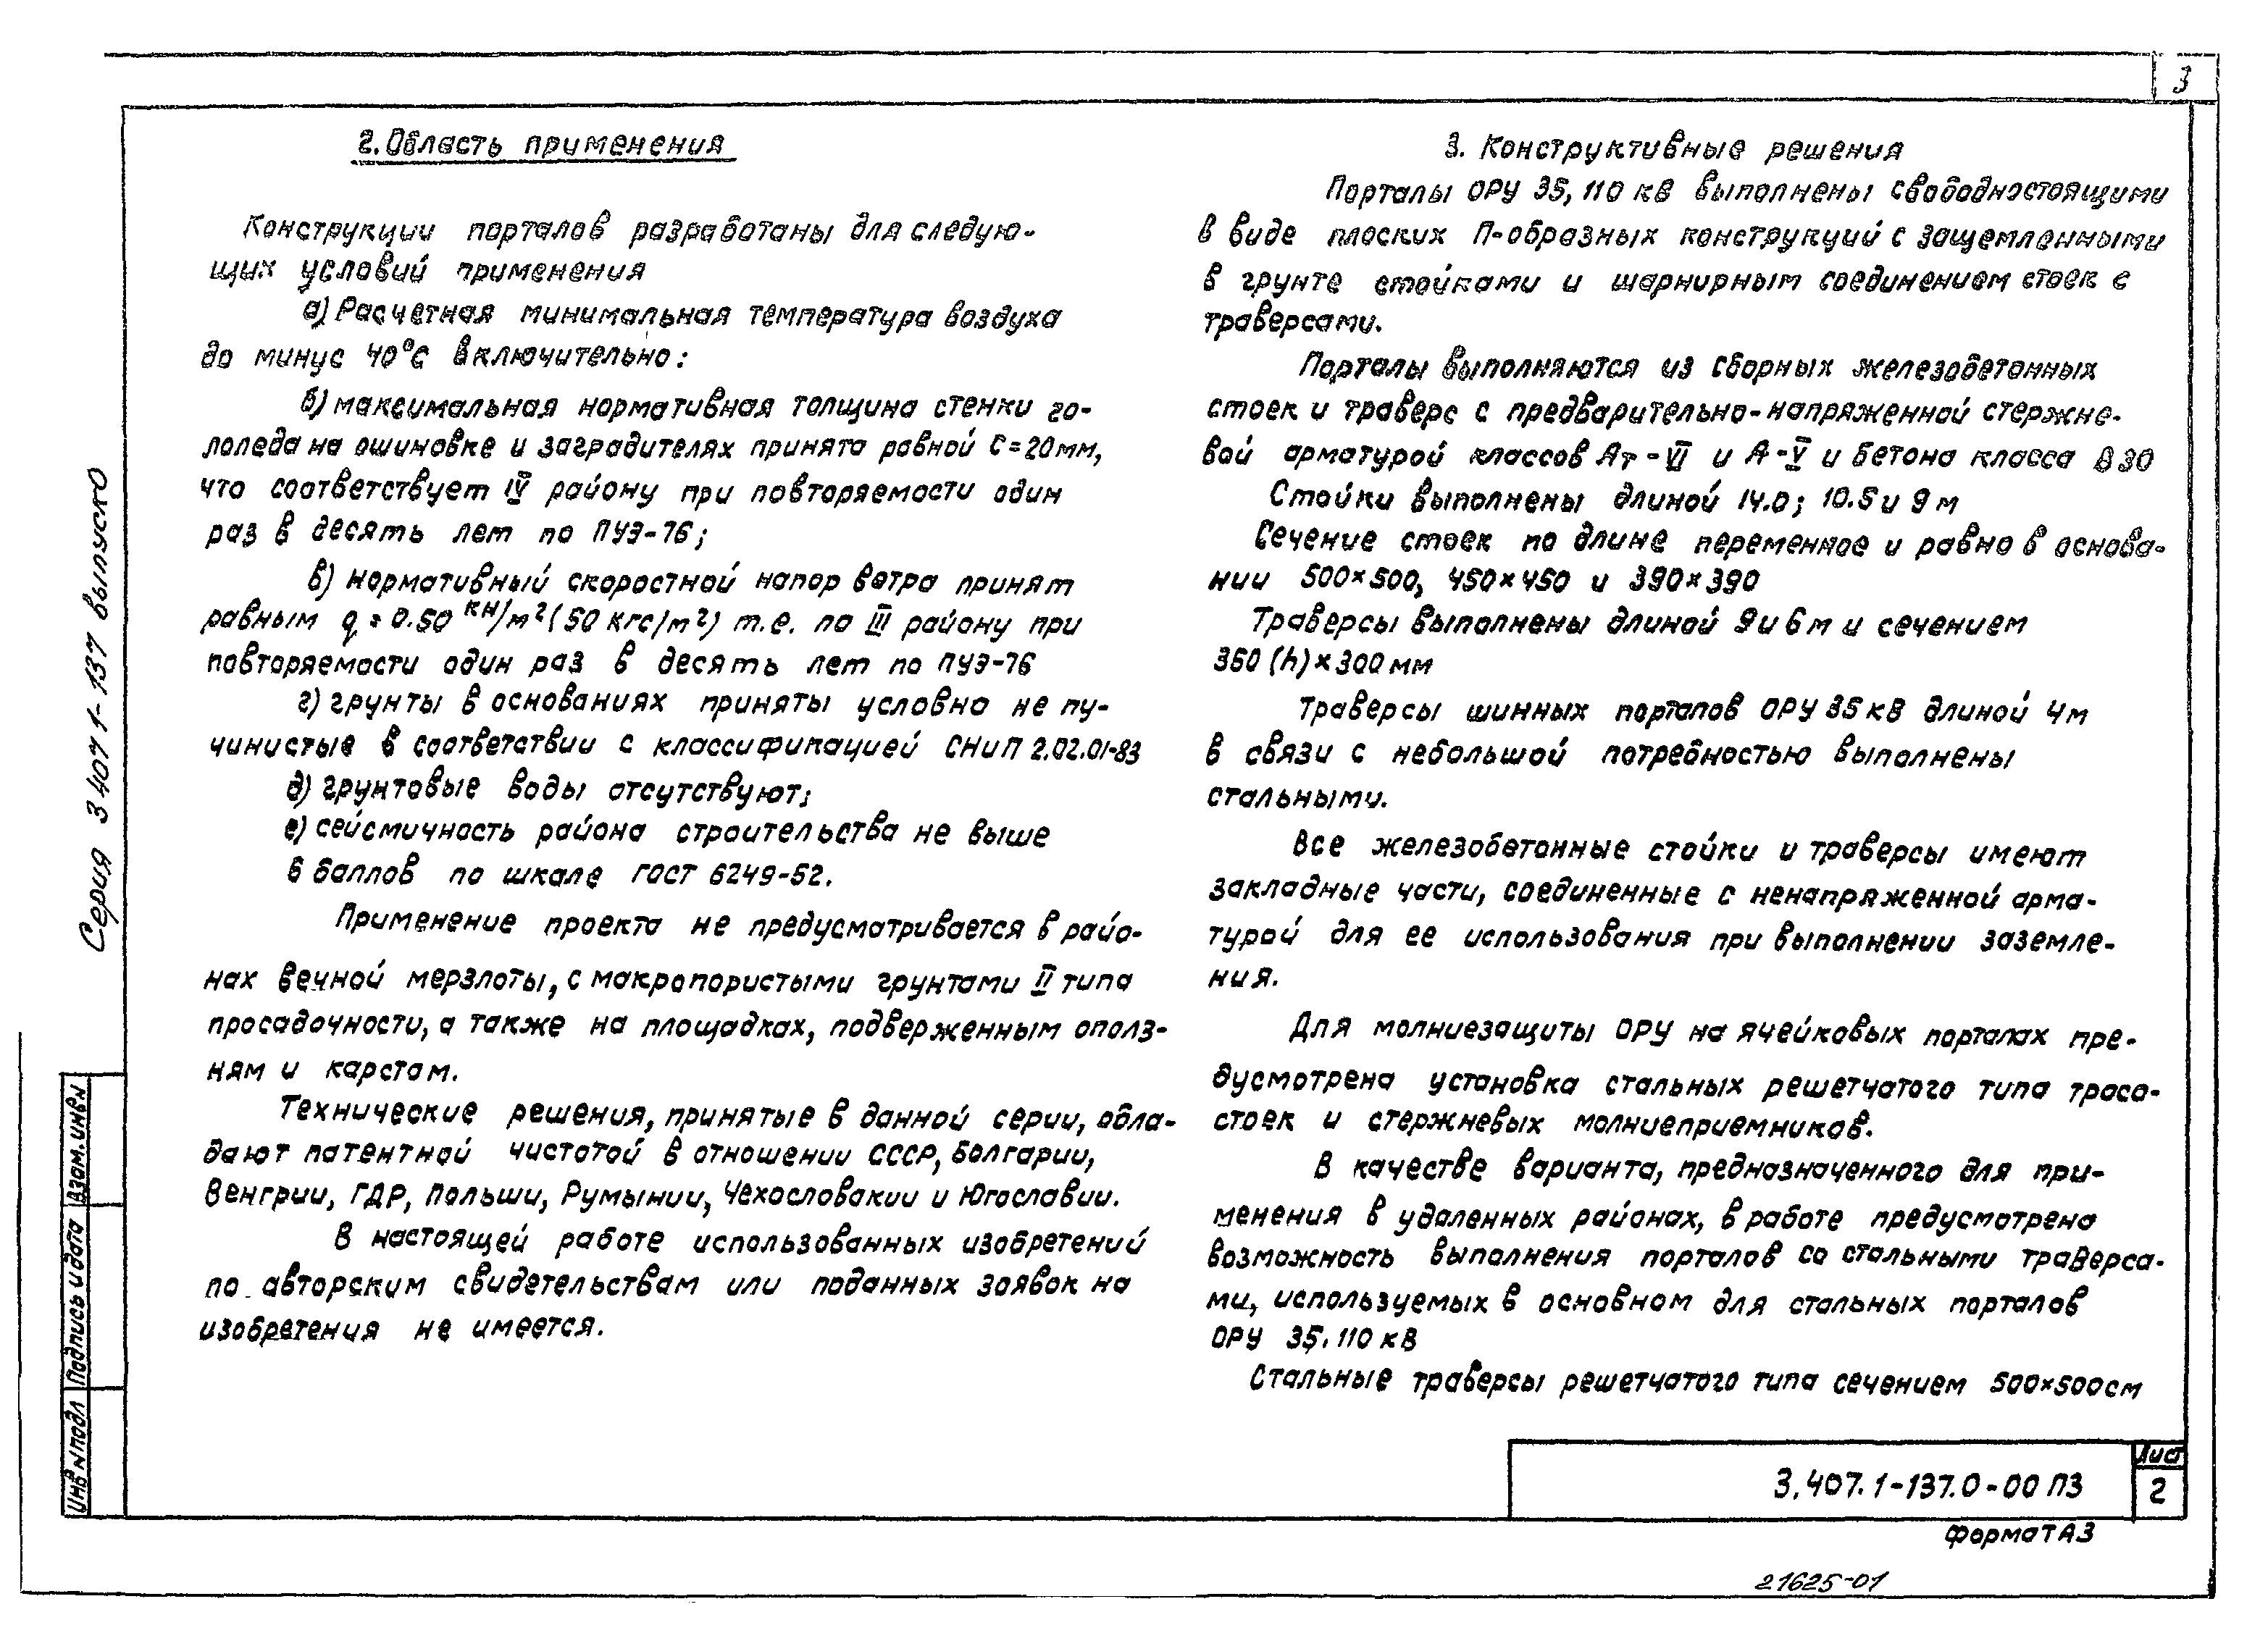 3
2. Область применения
Конструкции порталов разработаны для следую-
щих условий применения
а) Расчетная минимальная температура воздуха
до минус 40°С включительно:
б) максимальная нормативная толщина стенки го-
лоледа на ошиновке и заградителях принята равной С=20мм,
что соответствует IV району при повторяемости один
раз в десять лет по ПУЭ-76;
в) нормативный скоростной напор ветра принят
равным q = 0.50 кн/м² (50 кгс/м²) т.е. по III району при
повторяемости один раз в десять лет по ПУЭ-76
г) грунты в основаниях приняты условно не пу-
чинистые в соответствии с классификацией СНиП 2.02.01-83
д) грунтовые воды отсутствуют;
е) сейсмичность района строительства не выше
6 баллов по шкале ГОСТ 6249-52.
Применение проекта не предусматривается в райо-
нах вечной мерзлоты, с макропористыми грунтами II типа
просадочности, а также на площадках, подверженным ополз-
ням и карстам.
Технические решения, принятые в данной серии, обла-
дают патентной чистотой в отношении СССР, Болгарии,
Венгрии, ГДР, Польши, Румынии, Чехословакии и Югославии.
В настоящей работе использованных изобретений
по авторским свидетельствам или поданных заявок на
изобретения не имеется.
3. Конструктивные решения
Порталы ОРУ 35, 110 кВ выполнены свободностоящими
в виде плоских П-образных конструкций с защемленными
в грунте стойками и шарнирным соединением стоек с
траверсами.
Порталы выполняются из сборных железобетонных
стоек и траверс с предварительно-напряженной стержне-
вой арматурой классов Ат-VI и А-V и бетона класса В30
Стойки выполнены длиной 14.0; 10.5 и 9 м
Сечение стоек по длине переменное и равно в основа-
нии 500×500, 450×450 и 390×390
Траверсы выполнены длиной 9 и 6 м и сечением
360 (h)×300 мм
Траверсы шинных порталов ОРУ 35 кВ длиной 4 м
в связи с небольшой потребностью выполнены
стальными.
Все железобетонные стойки и траверсы имеют
закладные части, соединенные с ненапряженной арма-
турой для ее использования при выполнении заземле-
ния.
Для молниезащиты ОРУ на ячейковых порталах пре-
дусмотрена установка стальных решетчатого типа тросо-
стоек и стержневых молниеприемников.
В качестве варианта, предназначенного для при-
менения в удаленных районах, в работе предусмотрена
возможность выполнения порталов со стальными траверса-
ми, используемых в основном для стальных порталов
ОРУ 35, 110 кВ
Стальные траверсы решетчатого типа сечением 500×500см
Серия 3 407 1-137 выпуск 0
Взам. инв N
Подпись и дата
Инв N подл
3.407.1-137.0-00 ПЗ
Лист
2
Формат А3
21625-01